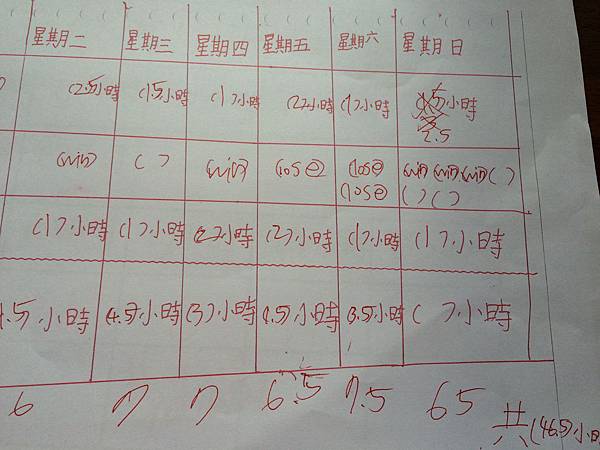 星期二 星期三 星期四 星期五 星期六 星期日
(2.5)小時 (1.5)小時 (1)小時 (2)小時 (1)小時 小時
2.5
(win) ( ) (win) (lose) (lose) (win) (win) (win) ( )
(lose) ( ) ( )
(1)小時 (1)小時 (2)小時 (2)小時 (1)小時 (1)小時
.5小時 (4.5)小時 (3)小時 (1.5)小時 (3.5)小時 ( )小時
6 7 7 6.5 7.5 65
共(46.5)小時